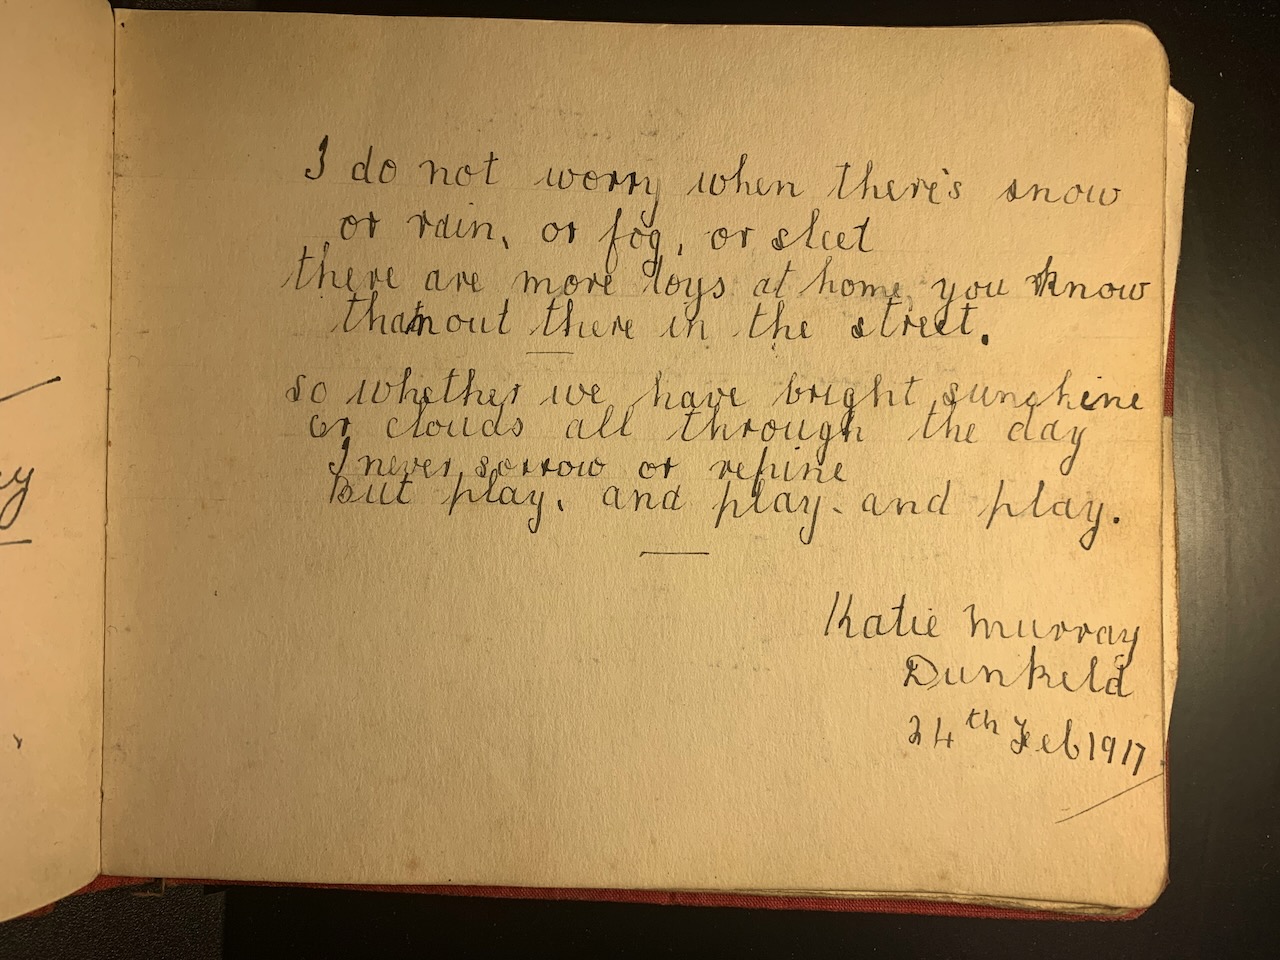 I do not worry when there's snow
or rain, or fog, or sleet
there are more toys at home, you know
than out there in the street.
so whether we have bright sunshine
or clouds all through the day
I never sorrow or repine
But play, and play, and play.
Katie Murray
Dunkeld
24th Feb 1917